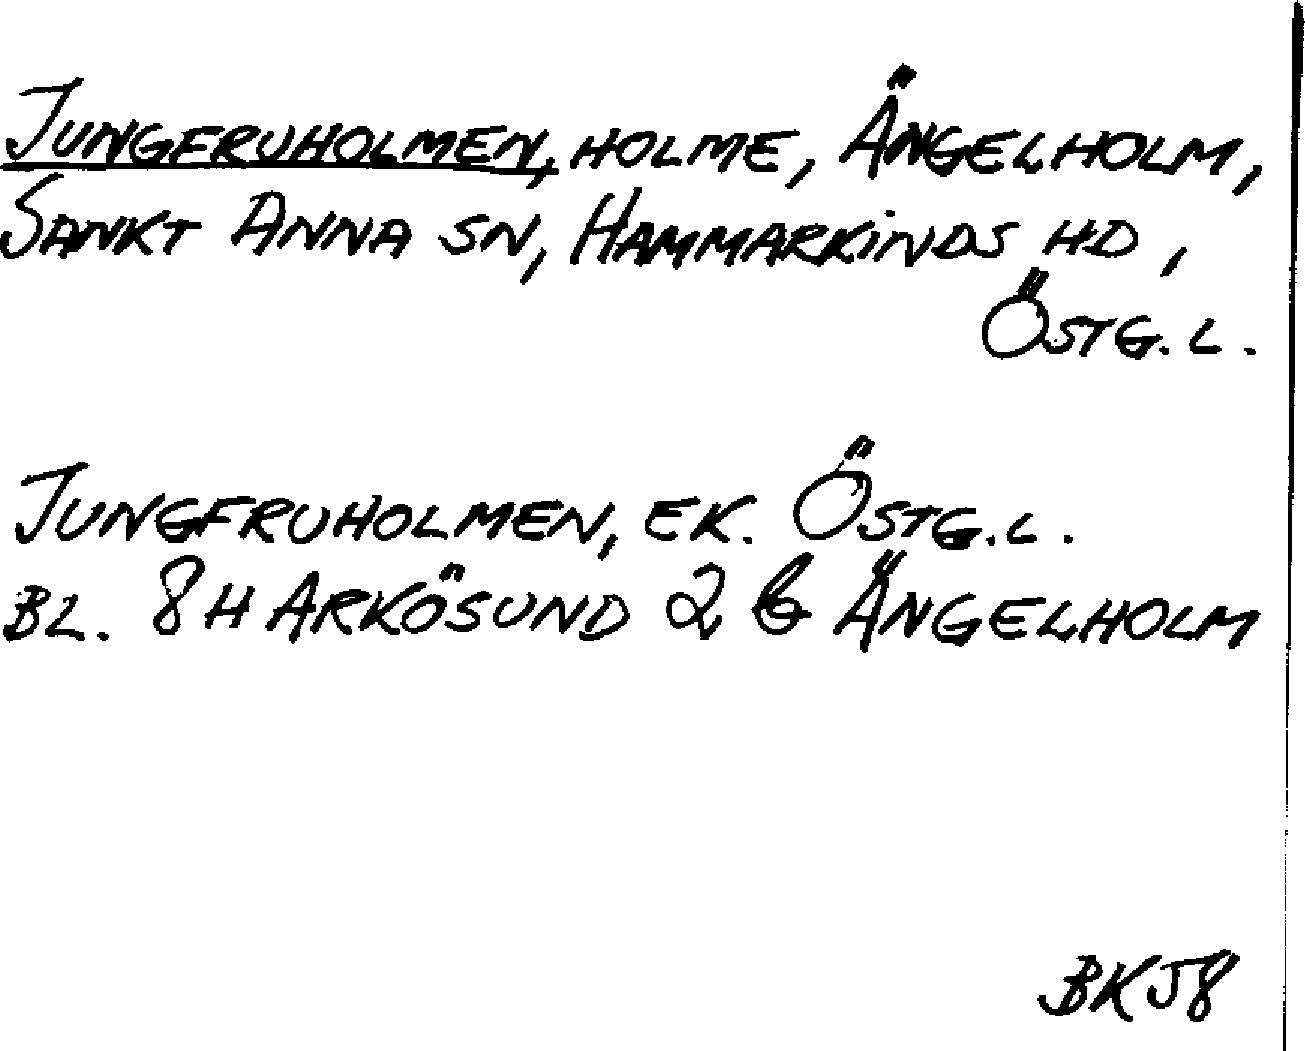 JUNGFRUHOLMEN, HOLME, ÄNGELHOLM,
SANKT ANNA SN, HAMMARKINDS HD,
ÖSTG. L.
JUNGFRUHOLMEN, EK. ÖSTG. L.
BL. 8H ARKÖSUND 2 b ÄNGELHOLM
BKJ8